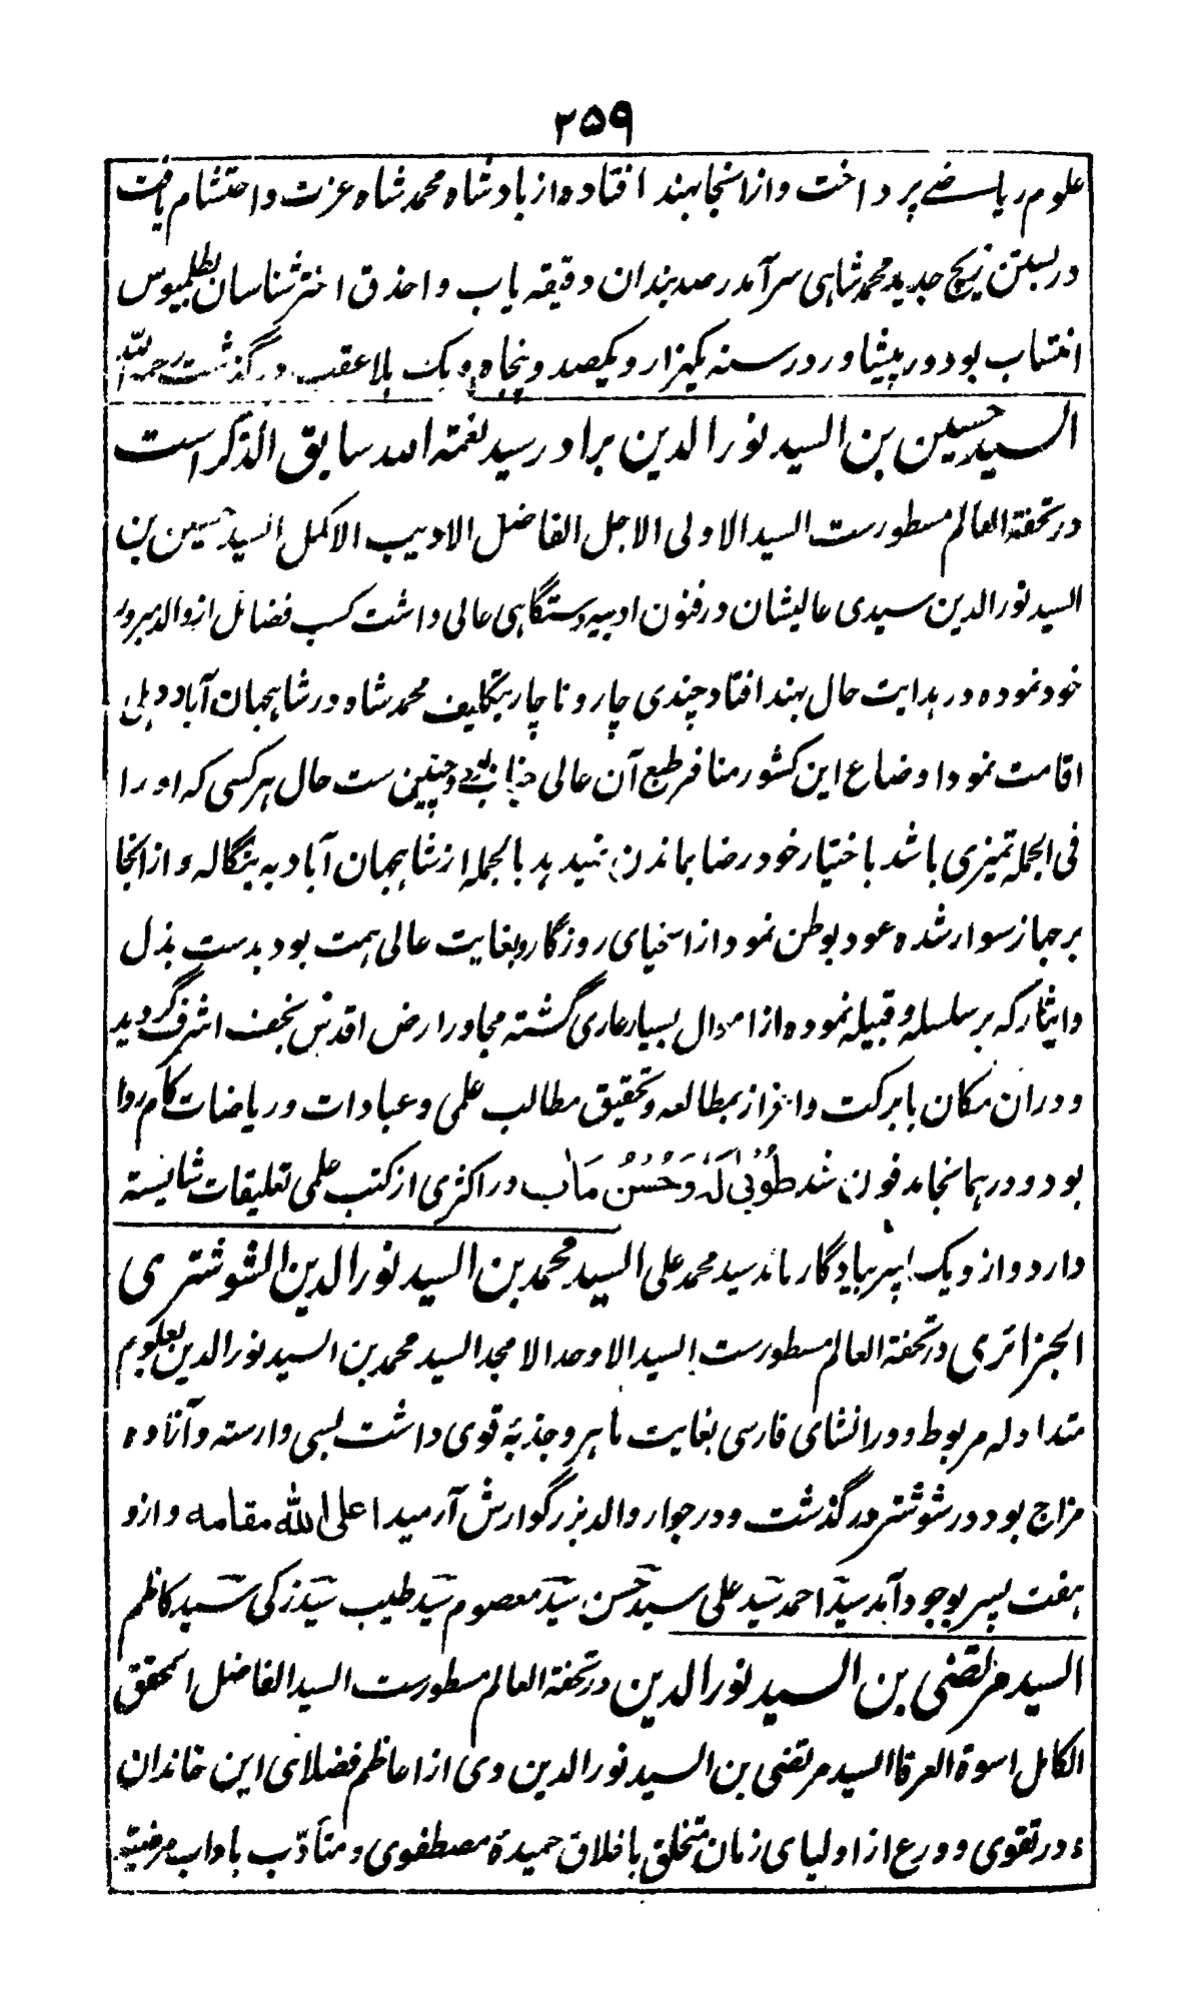 ۲۵۹
علوم ریاضے پرداخت و از انجا بہند افتادہ از بادشاہ محمد شاہ عزت و احتشام یافت
در بستن زیچ جدید محمد شاہی سرآمد رصد بندان دقیقہ یاب و احذق اخترشناسان بطلمیوس
انتساب بود و در پیشاور در سنہ یکہزار و یکصد و پنجاہ و یک بلا عقب در گذشت رحمہ اللہ
السید حسین بن السید نور الدین برادر سید نعمۃ اللہ سابق الذکر است
در تحفۃ العالم مسطورست السید الاولی الاجل الفاضل الادیب الاکمل السید حسین بن
السید نور الدین سیدی عالیشان در فنون ادبیہ دستگاہی عالی داشت کسب فضائل از والد مبرور
خود نمودہ در بدایت حال بہند افتاد چندی چار و ناچار بتکلیف محمد شاہ در شاہجہان آباد دہلی
اقامت نمود اوضاع این کشور منافر طبع آن عالی جناب بود و چنین ست حال ہر کسی کہ او را
فی الجملہ تمیزی باشد باختیار خود رضا بماندن نمیدہد بالجملہ از شاہجہان آباد بہ بنگالہ و از انجا
بر جہاز سوار شدہ عود بوطن نمود از اسخیای روزگار و بغایت عالی ہمت بود بدست بذل
و ایثار کہ بر سلسلہ و قبیلہ نمودہ از اموال بسیار عاری گشتہ مجاور ارض اقدس نجف اشرف گردید
و در ان مکان با برکت و اعزاز بمطالعہ و تحقیق مطالب علمی و عبادات و ریاضات کام روا
بود و در ہمانجا مدفون شد طُوْبیٰ لَہٗ وَحُسْنُ مَاٰب در اکثری از کتب علمی تعلیقات شایستہ
دارد و از و یک پسر بیادگار ماند سید محمد علی السید محمد بن السید نور الدین الشوشتری
الجزائری در تحفۃ العالم مسطورست السید الاوحد الامجد السید محمد بن السید نور الدین بعلوم
متداولہ مربوط و در انشای فارسی بغایت ماہر و جذبۂ قوی داشت بسی وارستہ و آزادہ
مزاج بود در شوشتر در گذشت و در جوار والد بزرگوارش آرمید اعلی اللہ مقامہ و ازو
ہفت پسر بوجود آمد سید احمد سید علی سید حسن سید معصوم سید طیب سید زکی سید کاظم
السید مرتضی بن السید نور الدین در تحفۃ العالم مسطورست السید الفاضل المحقق
الکامل اسوۃ العرفا السید مرتضی بن السید نور الدین وی از اعاظم فضلای این خاندان
و در تقوی و ورع از اولیای زمان متخلق باخلاق حمیدۂ مصطفوی و متأدّب بآداب مرضیّہ